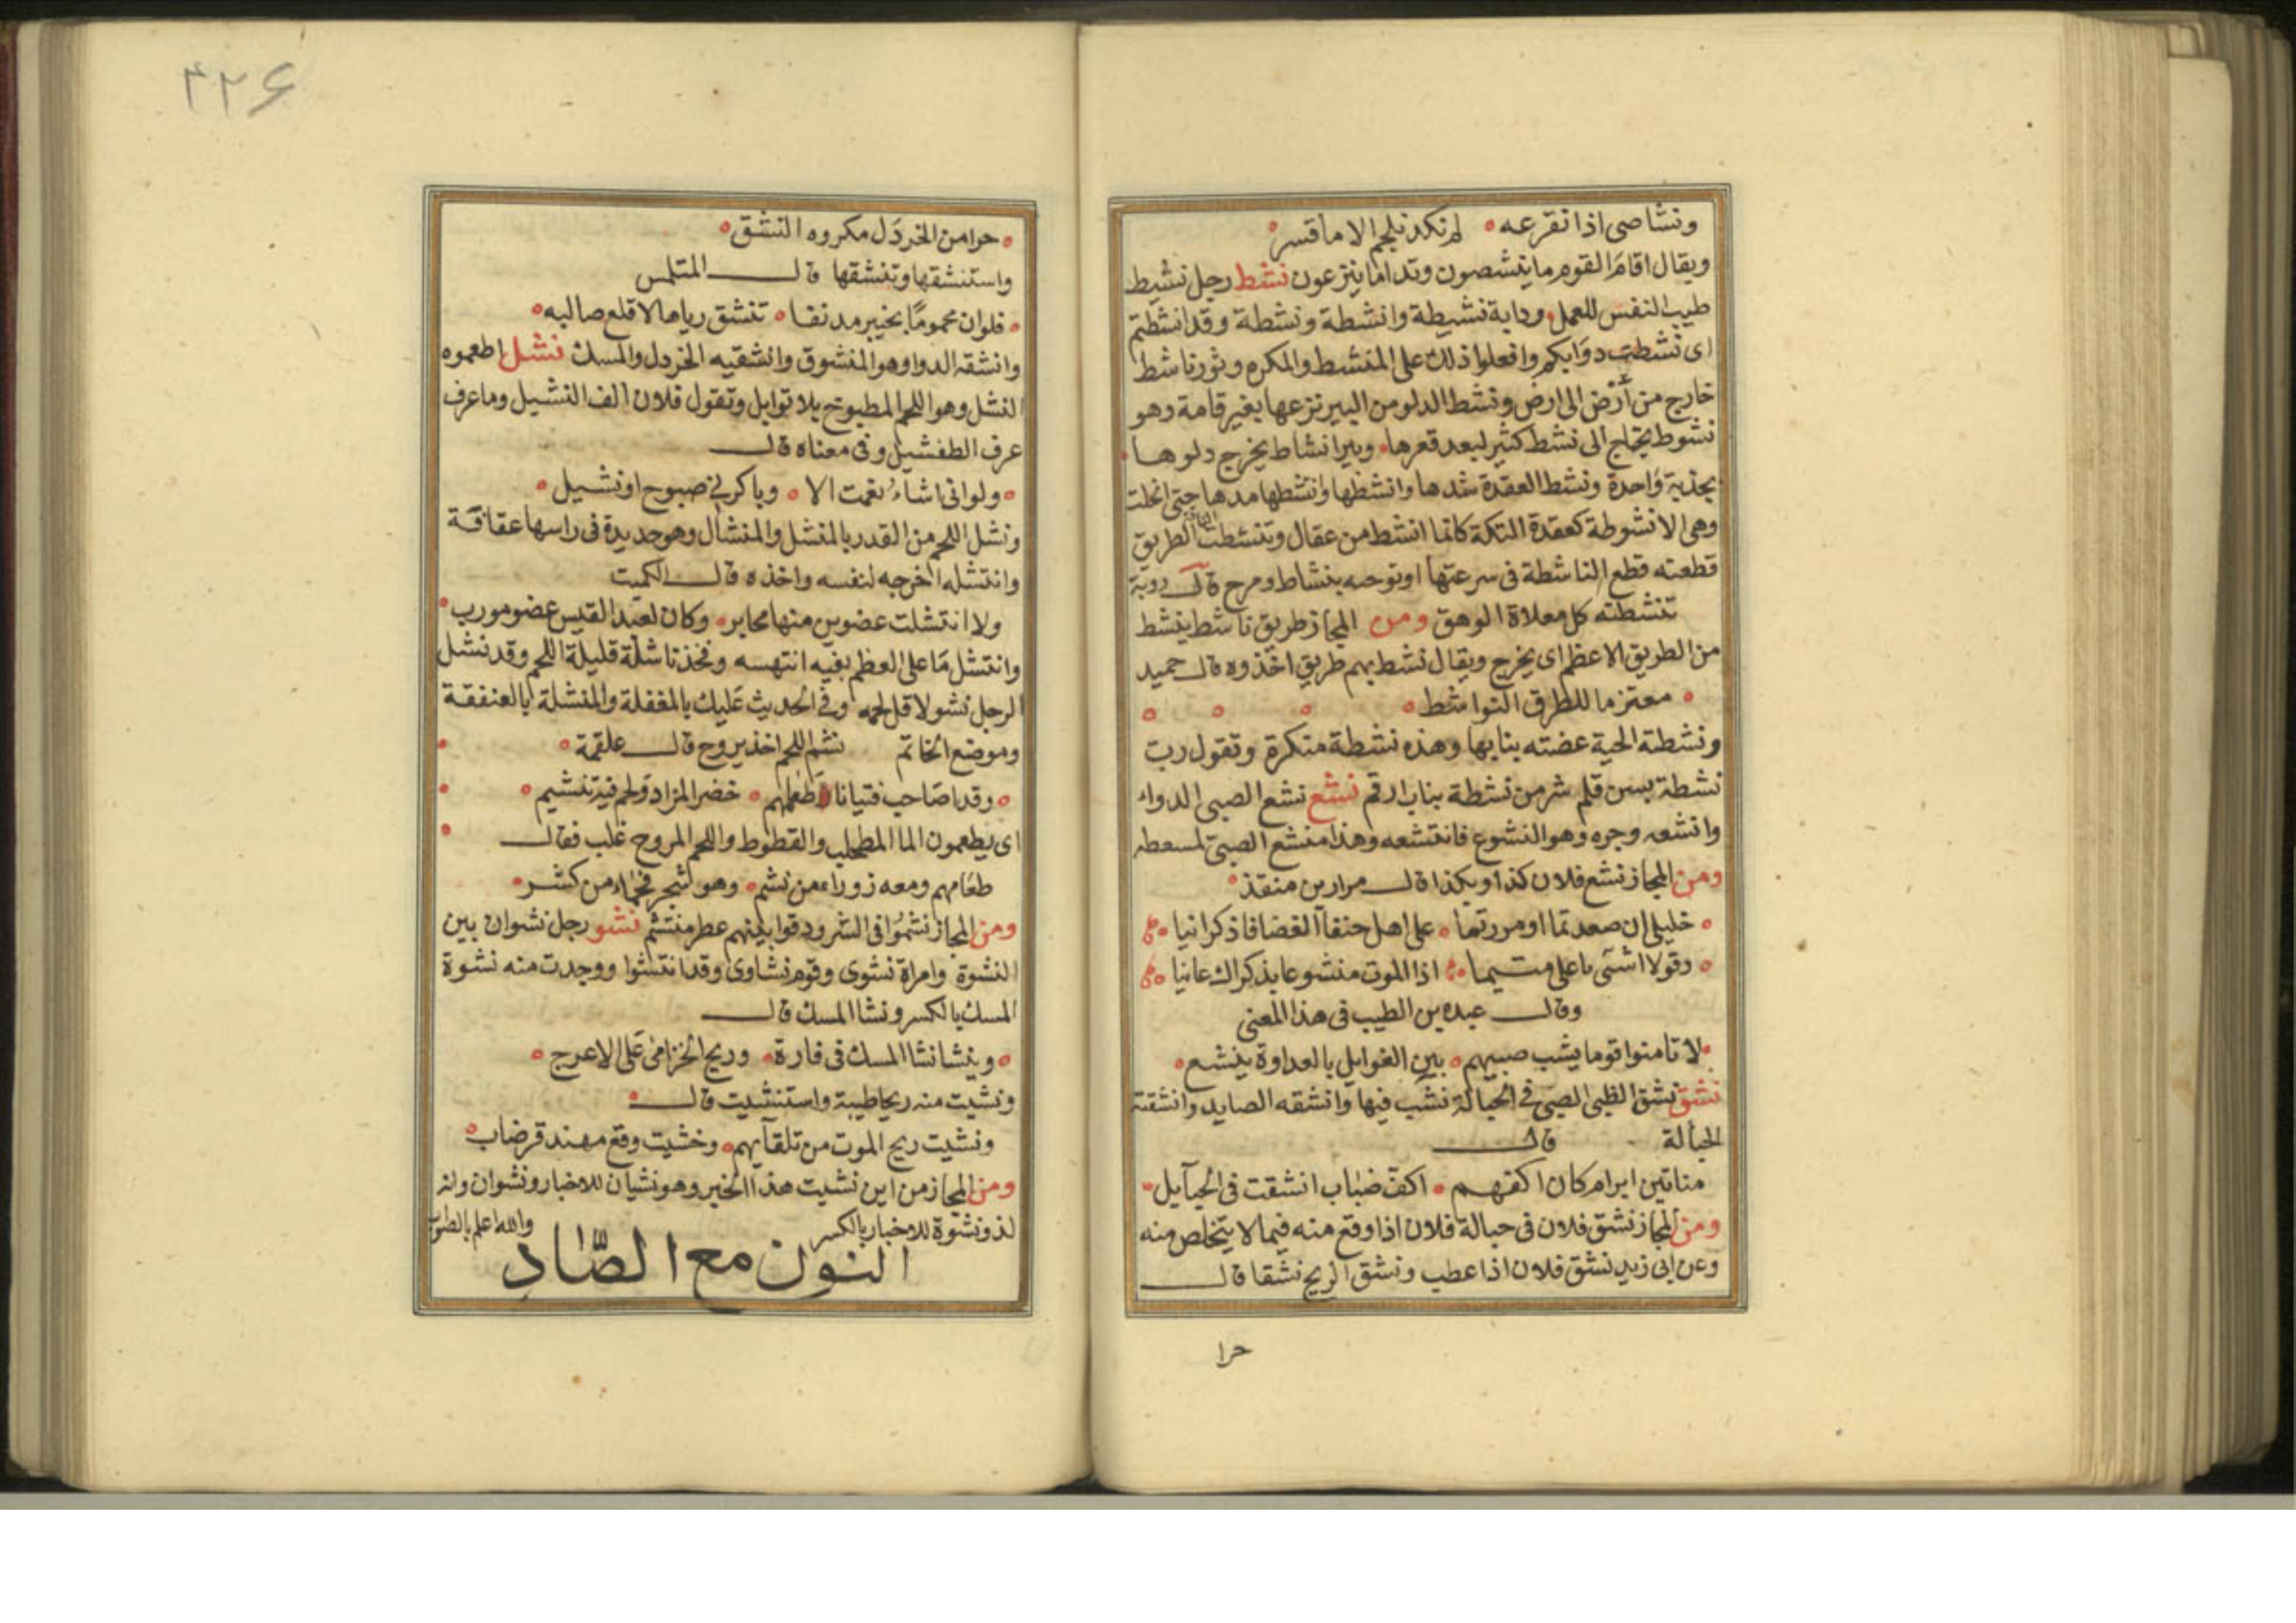 ونشاصى اذا نقرعه لم نكد نلجم الا ما قسر
ويقال اقام القوم ما ينشصون وتداما ينزعون نشط رجل نشيط
طيب النفس للعمل ودابة نشيطة وانشطة ونشطة وقد انشطتم
اى نشطت دوابكم وافعلوا ذلك على المنشط والمكره وثور ناشط
خارج من أرض الى ارض ونشط الدلو من البير نزعها بغير قامة وهو
نشوط يحتاج الى نشط كثير لبعد قعرها وبير انشاط يخرج دلوها
بجذبة واحدة ونشط العقدة شدها وانشطها وانتشطها مدها حتى انحلت
وهى الانشوطة كعقدة التكة كانما انشط من عقال وتنشطت الناقة الطريق
قطعته قطع الناشطة فى سرعتها او توحه بنشاط ومرح قال روبة
تنشطته كل مغلاة الوهق ومن المجاز طريق ناشط ينشط
من الطريق الاعظم اى يخرج ويقال نشط بهم طريق اخذوه قال حميد
معتزما للطرق النواشط
ونشطته الحية عضته بنابها وهذه نشطة منكرة وتقول رب
نشطة بسن قلم شر من نشطة بناب ارقم نشع نشع الصبى الدواء
وانشعه وجره وهو النشوع فانتشعه وهذا منشع الصبى لمسعطه
ومن المجاز نشع فلان كذا وبكذا قال مرار بن منقذ
خليلى ان صعدتما او مررتما على اهل حنقا الغضا فاذكرانيا
وقولا اشتى باعلى متيما اذا الموت منشوعا بذكراك عانيا
وقال عبده بن الطيب فى هذا المعنى
لا تامنوا قوما يشب صبيهم بين الغوايل بالعداوة ينشع
نشق نشق الظبى الصبى فى الحبالة نشب فيها وانشقه الصايد وانشقته
الحبالة قال
مناتين ابرام كان اكفهم اكف ضباب انشقت فى الحبآيل
ومن المجاز نشق فلان فى حبالة فلان اذا وقع منه فيما لا يتخلص منه
وعن ابى زيد نشق فلان اذا عطب ونشق الريح نشقا قال
حرا
٣٢۶
حرا من الخردل مكروه النشق
واستنشقها وتنشقها قال المتلمس
فلو ان محموما بخيبر مدنفا تنشق رياها لاقلع صالبه
وانشقه الدوا وهو المنشوق وانشقيه الخردل والمسك نشل اطعموه
النشل وهو اللحم المطبوخ بلا توابل وتقول فلان الف النشيل وما عرف
عرف الطفشيل وفى معناه قال
ولو انى اشاء نعمت الا وباكرنى صبوح او نشيل
ونشل اللحم من القدر بالمنشل والمنشال وهو حديدة فى راسها عقافة
وانتشله اخرجه لنفسه واخذه قال الكميت
ولا انتشلت عضوين منها يحابر وكان لعبد القيس عضو مورب
وانتشل ما على العظم بفيه انتهسه وفخذ ناشلة قليلة اللحم وقد نشل
الرجل نشولا قل لحمه وفى الحديث عليك بالمغفلة والمنشلة بالعنفقة
وموضع الخاتم نشم اللحم اخذ يروح قال علقمة
وقد اصاحب فتيانا طعامهم خضر المزاد ولحم فيه تنشيم
اى يطعمون الما المطحلب والقطوط واللحم المروح غلب فقال
طعامهم ومعه زوراء من نشم وهو شجر فخماء من كشر
ومن المجاز نشموا فى الشر ودقوا بينهم عطر منشم نشو رجل نشوان بين
النشوة وامراة نشوى وقوم نشاوى وقد انتشوا ووجدت منه نشوة
المسك بالكسر ونشا المسك قال
وينشا نشا المسك فى فارة وريح الخزامى على الاعرج
ونشيت منه ريحا طيبة واستنشيت قال
ونشيت ريح الموت من تلقآيهم وخشيت وقع مهند قرضاب
ومن المجاز من اين نشيت هذا الخبر وهو نشيان للاخبار ونشوان وانه
لذو نشوة للاخبار بالكسر والله اعلم بالصواب
النون مع الصّاد